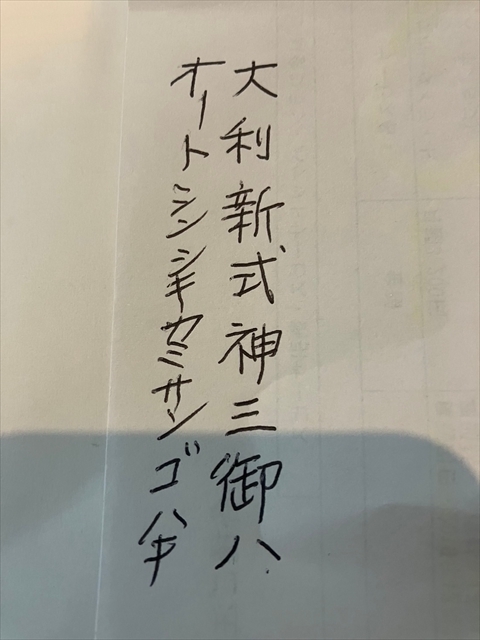 大利新式神三御八
オートシンシキカミサンゴハキ